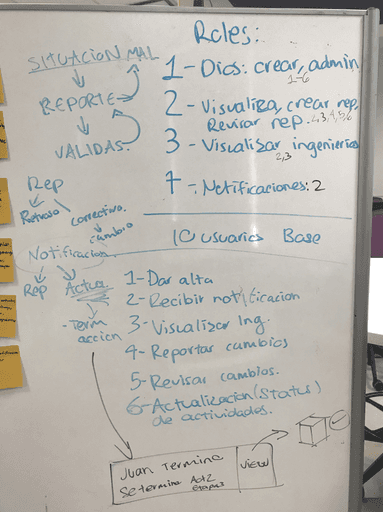 Roles:
SITUACION MAL
REPORTE
VALIDAS
1- Dios: crear, admin
1-6
2- Visualiza, crear rep,
Revisar rep. 2,3,4,5,6
3- Visualizar ingenierios
2,3
4-. Notificaciones: 2
Rep
Retraso
correctivo.
cambio
Notificacion
Rep
Actua.
- Term
accion
10 usuarios Base
1-Dar alta
2- Recibir notificacion
3- Visualizar Ing.
4- Reportar cambios
5- Revisar cambios.
6- Actualizacion (status)
de actividades.
Juan Termino
Se termina Act 2
VIEW